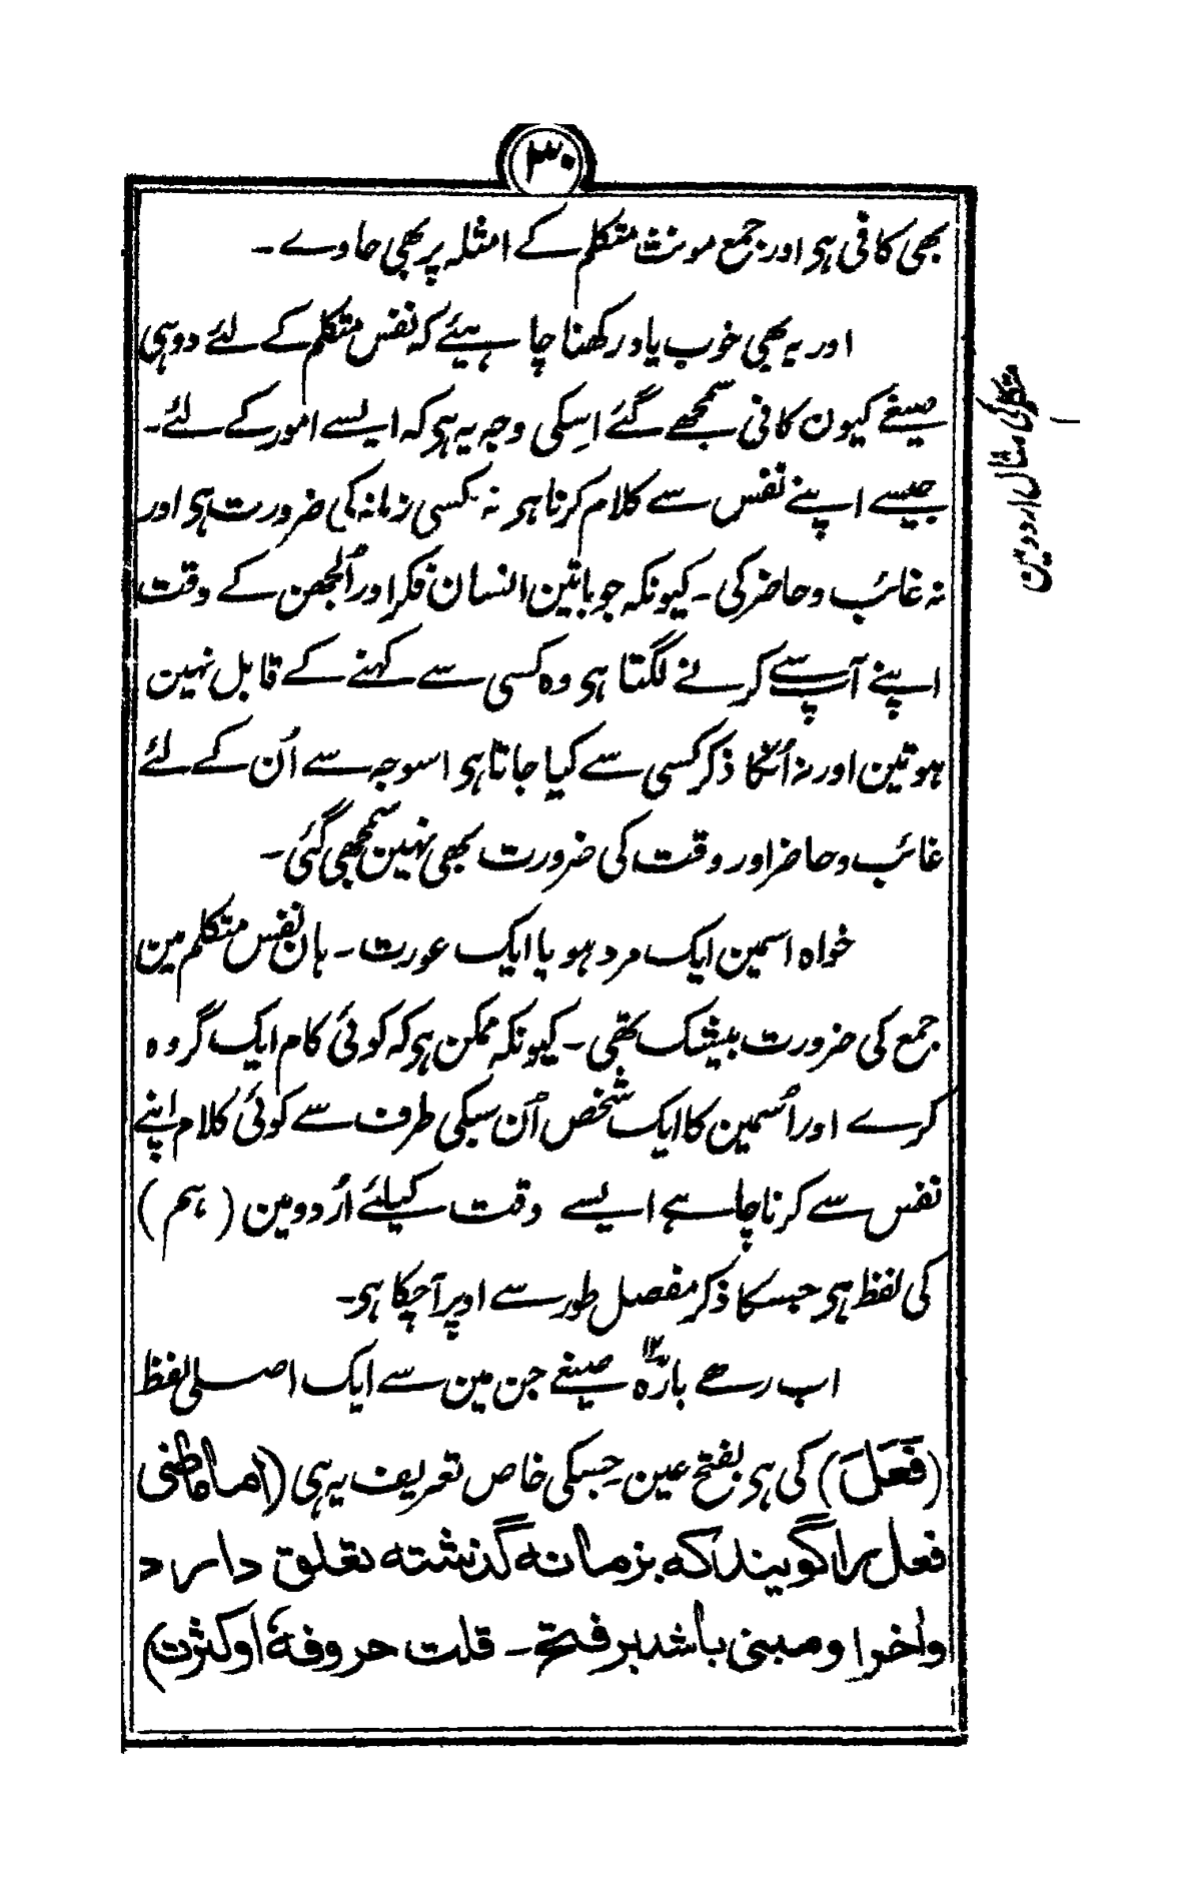 ۳۰
بھی کافی ہی اور جمع مونث متکلم کے امثلہ پر بھی حاوے ۔
اور یہ بھی خوب یاد رکھنا چاہیئے کہ نفس متکلم کے لئے دو ہی
صیغے کیون کافی سمجھے گئے اسکی وجہ یہ ہی کہ ایسے امور کے لئے ۔
جیسے اپنے نفس سے کلام کرنا ہو نہ کسی زمانہ کی ضرورت ہی اور
نہ غائب و حاضر کی ۔ کیونکہ جو باتین انسان فکر اور اُلجھن کے وقت
اپنے آپ سے کرنے لگتا ہی وہ کسی سے کہنے کے قابل نہین
ہوتین اور نہ اُنکا ذکر کسی سے کیا جاتا ہی اسوجہ سے اُن کے لئے
غائب و حاضر اور وقت کی ضرورت بھی نہین سمجھی گئی ۔
خواہ اسمین ایک مرد ہو یا ایک عورت ۔ ہان نفس متکلم مین
جمع کی ضرورت بیشک تھی ۔ کیونکہ ممکن ہی کہ کوئی کام ایک گروہ
کرے اور اُسمین کا ایک شخص اُن سبکی طرف سے کوئی کلام اپنے
نفس سے کرنا چاہے ایسے وقت کیلئے اُردو مین ( ہم )
کی لفظ ہی جسکا ذکر مفصل طور سے اوپر آچکا ہی ۔
اب رہے بارہ ۱۲ صیغے جن مین سے ایک اصلی لفظ
(فَعَلَ) کی ہی بفتح عین جسکی خاص تعریف یہ ہی (اما ماضی
فعل را گویند کہ بزمانہ گذشتہ تعلق دارد
واخر او مبنی باشد بر فتحہ ۔ قلت حروفہ او کثرت)
متکلم کی مثال اردو مین